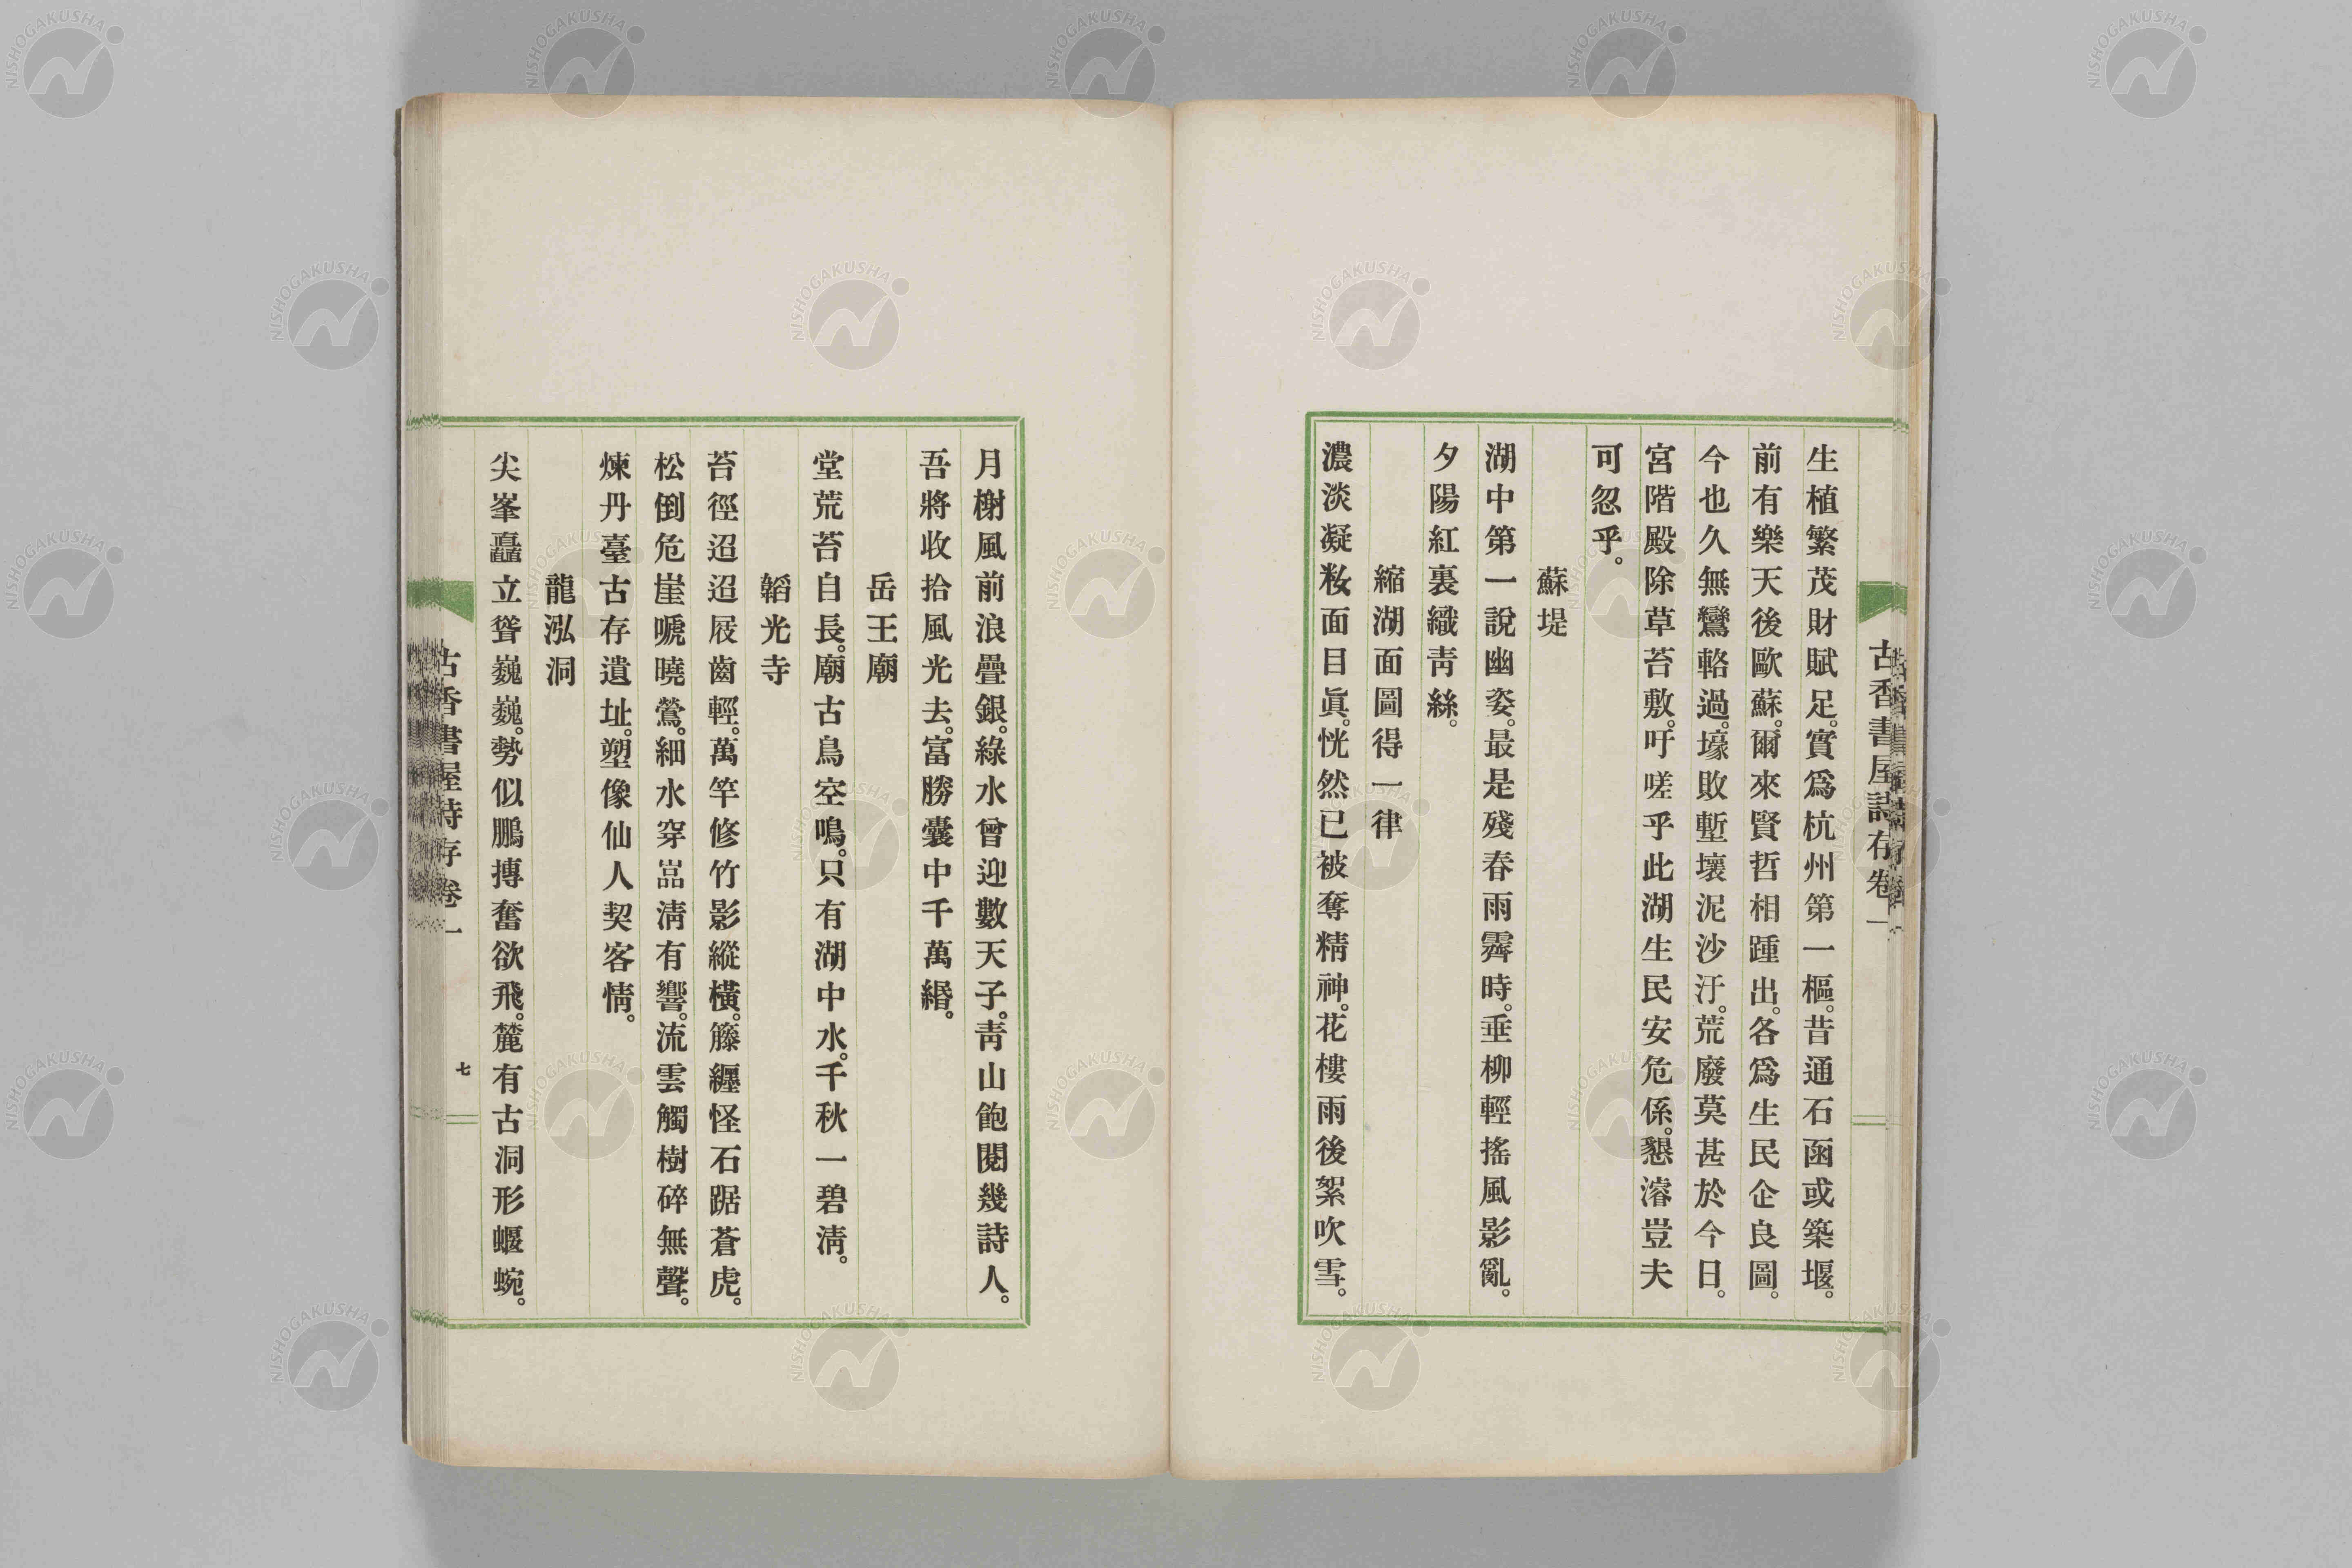 古香書屋詩存卷一
生植繁茂財賦足。實爲杭州第一樞。昔通石函或築堰。
前有樂天後歐蘇。爾來賢哲相踵出。各爲生民企良圖。
今也久無鸞輅過。壕敗塹壞泥沙汙。荒廢莫甚於今日。
宮階殿除草苔敷。吁嗟乎此湖生民安危係。懇濬豈夫
可忽乎。
蘇堤
湖中第一說幽姿。最是殘春雨霽時。垂柳輕搖風影亂。
夕陽紅裏織靑絲。
縮湖面圖得一律
濃淡凝妝面目眞。恍然已被奪精神。花樓雨後絮吹雪。
月榭風前浪疊銀。綠水曾迎數天子。靑山飽閱幾詩人。
吾將收拾風光去。富勝囊中千萬緡。
岳王廟
堂荒苔自長。廟古鳥空鳴。只有湖中水。千秋一碧淸。
韜光寺
苔徑迢迢屐齒輕。萬竿修竹影縱橫。籐纒怪石踞蒼虎。
松倒危崖嗁曉鶯。細水穿嵓淸有響。流雲觸樹碎無聲。
煉丹臺古存遺址。塑像仙人契客情。
龍泓洞
尖峯矗立聳巍巍。勢似鵬搏奮欲飛。麓有古洞形蝘蜿。
古香書屋詩存卷一
七
NISHOGAKUSHA